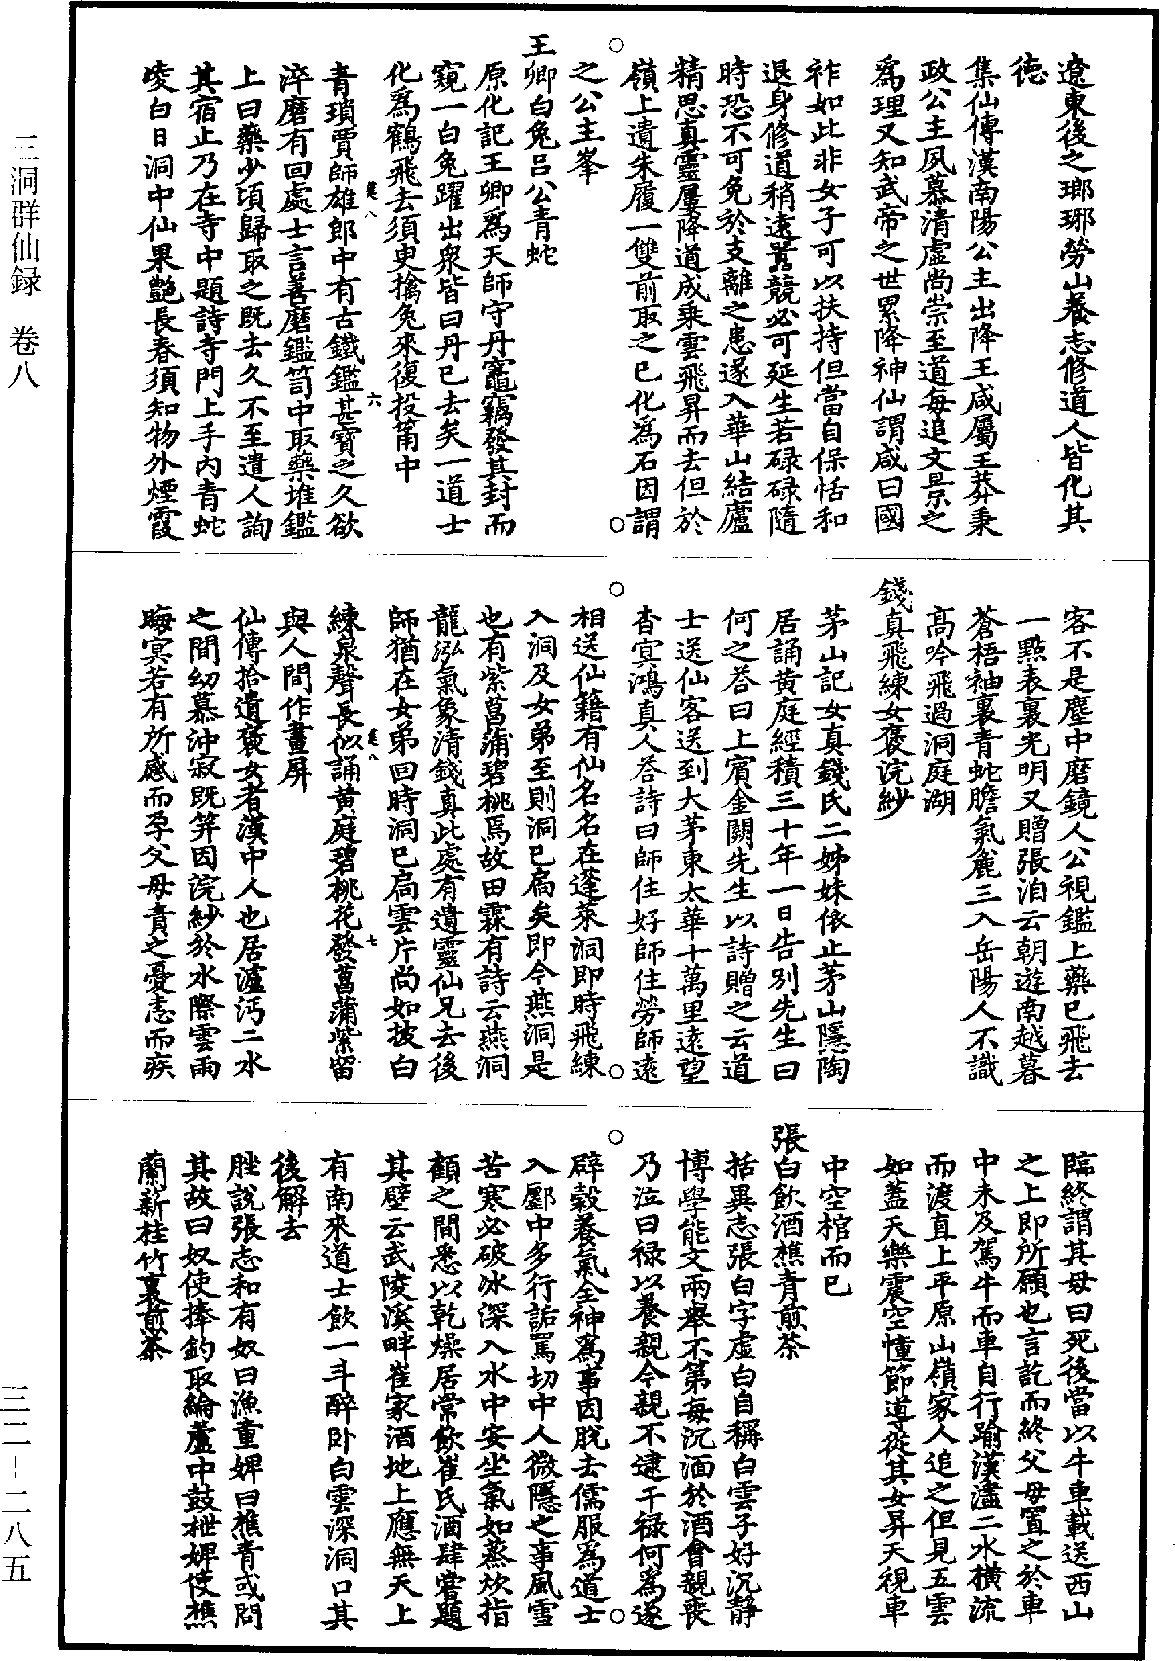 遼東後之瑯琊勞山養志修道人皆化其
德
集仙傳漢南陽公主出降王咸屬王莽秉
政公主夙慕清虛尚崇至道每追文景之
爲理又知武帝之世累降神仙謂咸曰國
祚如此非女子可以扶持但當自保恬和
退身修道稍遠囂競必可延生若碌碌隨
時恐不可免於支離之患遂入華山結廬
精思真靈屢降道成乘雲飛昇而去但於
嶺上遺朱履一雙前取之已化爲石因謂
之公主峯
王卿白兔呂公青蛇
原化記王卿爲天師守丹竈竊發其封而
窺一白兔躍出衆皆曰丹已去矣一道士
化爲鶴飛去須臾擒兔來復投莆中
青瑣賈師雄郎中有古鐵鑑甚寶之久欲
淬磨有回處士言善磨鑑笥中取藥堆鑑
上曰藥少頃歸取之既去久不至遣人詢
其宿止乃在寺中題詩寺門上手內青蛇
凌白日洞中仙果艷長春須知物外煙霞
客不是塵中磨鏡人公視鑑上藥已飛去
一點表裏光明又贈張洎云朝遊南越暮
蒼梧袖裏青蛇膽氣麄三入岳陽人不識
高吟飛過洞庭湖
錢真飛練女褒浣紗
茅山記女真錢氏二姊妹依止茅山隱陶
居誦黃庭經積三十年一日告別先生曰
何之答曰上賓金闕先生以詩贈之云道
士送仙客送到大茅東太華十萬里遠望
杳冥鴻真人答詩曰師住好師住勞師遠
相送仙籍有仙名名在蓬萊洞即時飛練
入洞及女弟至則洞已扃矣即今燕洞是
也有紫菖蒲碧桃焉故田霖有詩云燕洞
龍泓氣象清錢真此處有遺靈仙兄去後
師猶在女弟回時洞已扃雲片尚如披白
練泉聲長似誦黃庭碧桃花發菖蒲紫留
與人間作畫屏
仙傳拾遺褒女者漢中人也居瀘沔二水
之間幼慕沖寂既笄因浣紗於水際雲雨
晦冥若有所感而孕父母責之憂恚而疾
臨終謂其母曰死後當以牛車載送西山
之上即所願也言訖而終父母置之於車
中未及駕牛而車自行踰漢瀘二水橫流
而渡直上平原山嶺家人追之但見五雲
如蓋天樂震空幢節導從其女昇天視車
中空棺而已
張白飲酒樵青煎茶
括異志張白字虛白自稱白雲子好沉靜
博學能文兩舉不第每沉湎於酒會親喪
乃泣曰祿以養親今親不逮干祿何爲遂
辟穀養氣全神爲事因脫去儒服爲道士
入酈中多行詬罵切中人微隱之事風雪
苦寒必破冰深入水中安坐氣如蒸炊指
顧之間悉以乾燥居常飲崔氏酒肆嘗題
其壁云武陵溪畔崔家酒地上應無天上
有南來道士飲一斗醉卧白雲深洞口其
後解去
脞說張志和有奴曰漁童婢曰樵青或問
其故曰奴使捧釣取綸蘆中鼓枻婢使樵
蘭薪桂竹裏煎茶
三洞群仙録　卷八
三二－二八五